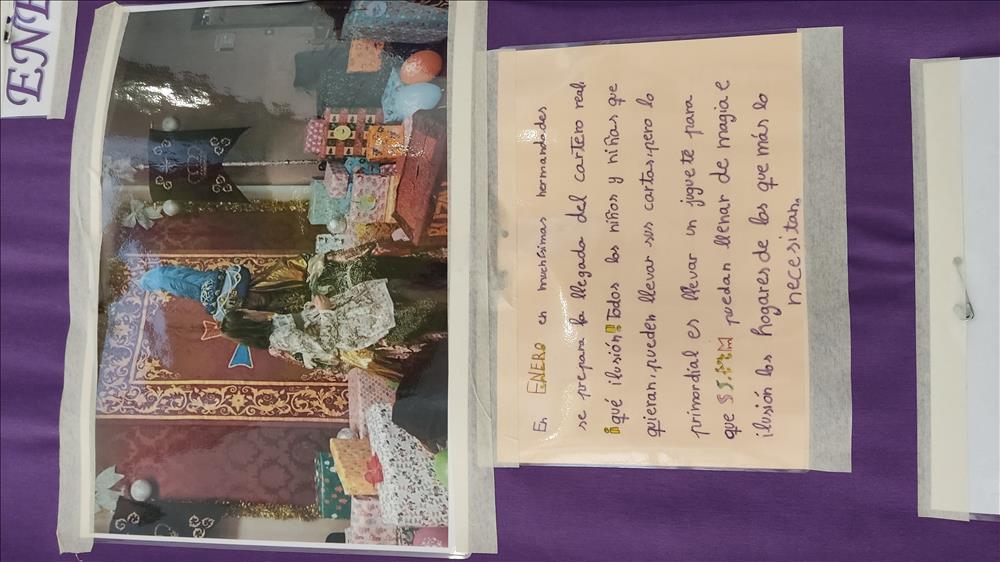 ENE
En ENERO en muchísimas hermandades
se prepara la llegada del cartero real
¡qué ilusión! Todos los niños y niñas que
quieran, pueden llevar sus cartas, pero lo
primordial es llevar un juguete para
que SS.MM puedan llenar de magia e
ilusión los hogares de los que más lo
necesitan.